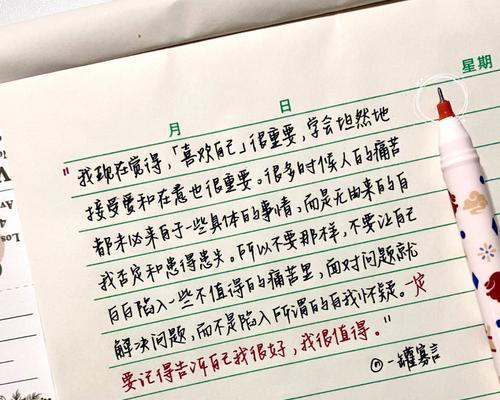 星期
日
月
"我现在觉得,「喜欢自己」很重要,学会坦然地
接受爱和在意也很重要。很多时候人的痛苦
都未必来自于一些具体的事情,而是无由来的自
我否定和患得患失。所以不要那样,不要让自己
白白陷入一些不值得的痛苦里,面对问题就
解决问题,而不是陷入所谓的自我怀疑。一定
要记得告诉自己我很好,我很值得。"
一罐寡言